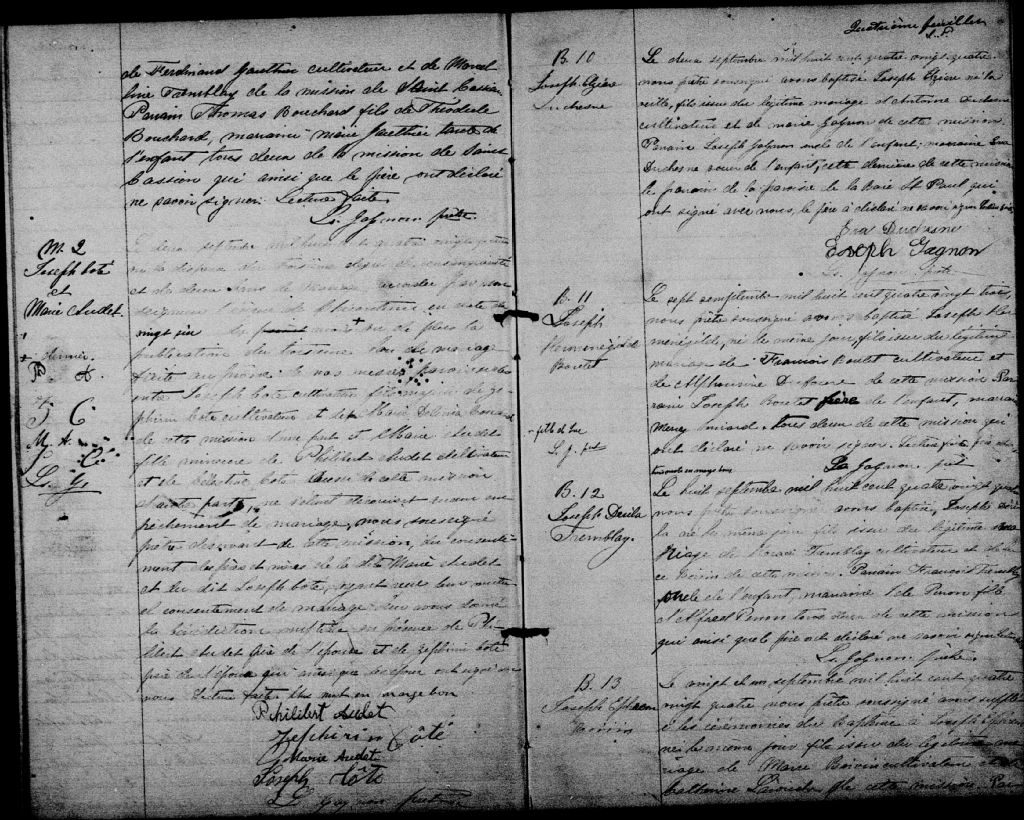 de Ferdinand Gauthier cultivateur et de Marcel
line Tremblay de la mission de Saint Cassien
Parrain Thomas Bouchard fils de Théodule
Bouchard, marraine Marie Gauthier tante de
l'enfant tous deux de la mission de Saint
Cassien qui ainsi que le père ont déclaré
ne savoir signer. Lecture faite.
Ls. Gagnon ptre.
M. 2
Joseph Coté
et
Marie Audet
+ dernier.
P. A.
J. C
M. A.
Z. Cé
L. G.
Le deux septembre mil huit cent quatre vingt quatre
vu la dispense du troisième degré de consanguinité
et de deux bans de mariage accordée par Mon
seigneur l'évêque de Chicoutimi en date du
vingt six du mois + vu de plus la
publication du troisième ban de mariage
faite au prône de nos messes paroissiales
entre Joseph Coté cultivateur fils majeur de Ze
phirin Coté cultivateur et de Marie
de cette mission d'une part et Marie Audet
fille mineure de Philibert Audet cultivateur
et de Coté de cette mission
d'autre part, ne s'étant découvert aucun em
pêchement de mariage, nous, soussigné
prêtre desservant de cette mission, du consente
ment les pères et mères de la dite Marie Audet
et du dit Joseph Coté, ayant reçu leur mutuel
consentement de mariage leur avons donné
la bénédiction nuptiale en présence de Phi
libert Audet père de l'épouse et de Zéphirin Coté
père de l'époux qui ainsi que les époux ont signé avec
nous. Lecture faite. Un mot en marge bon
Philibert Audet
Zephirin Côté
Marie Audet
Joseph Côté
Ls Gagnon ptre
Quatrième feuillet
L. G.
B. 10
Joseph Elzéar
Duchesne
Le deux septembre mil huit cent quatre vingt quatre
nous prêtre soussigné avons baptisé Joseph Elzéar né la
veille, fils issu du légitime mariage d'Antoine Duchesne
cultivateur et de Marie Gagnon de cette mission.
Parrain Joseph Gagnon oncle de l'enfant; marraine Eva
Duchesne soeur de l'enfant; cette dernière de cette mission
le parrain de la paroisse de la Baie St Paul qui
ont signé avec nous, le père a déclaré ne savoir signer. Lecture faite
Eva Duchesne
Joseph Gagnon
Ls. Gagnon Ptre
B. 11
Joseph
Herménégilde
Boulet
Le sept septembre mil huit cent quatre vingt
nous prêtre soussigné avons baptisé Joseph Her
ménégilde, né le même jour, fils issu du légitime
mariage de François Boulet cultivateur et
de Alphonsine Dufour de cette mission Par
rain Joseph Boulet frère de l'enfant, marraine
Mercy Simard tous deux de cette mission qui
ont déclaré ne savoir signer. Lecture faite
trois mots en marge bons
Ls Gagnon ptre
B. 12
Joseph
Tremblay.
Le huit septembre mil huit cent quatre vingt quatre
nous prêtre soussigné avons baptisé, Joseph
né le même jour fils issu du légitime ma
riage de Tremblay cultivateur et de
de cette mission. Parrain François Tremblay
oncle de l'enfant, marraine Perron fille
d'Alfred Perron tous deux de cette mission
qui ainsi que le père ont déclaré ne savoir signer.
Ls. Gagnon Ptre.
B. 13
Joseph Ephrem
Boivin
Le vingt et un septembre mil huit cent quatre
vingt quatre nous prêtre soussigné avons suppléé
à les cérémonies du Baptême à Joseph Ephrem
né le même jour fils issu du légitime ma
riage de Boivin cultivateur et de
Catherine de cette mission. Par